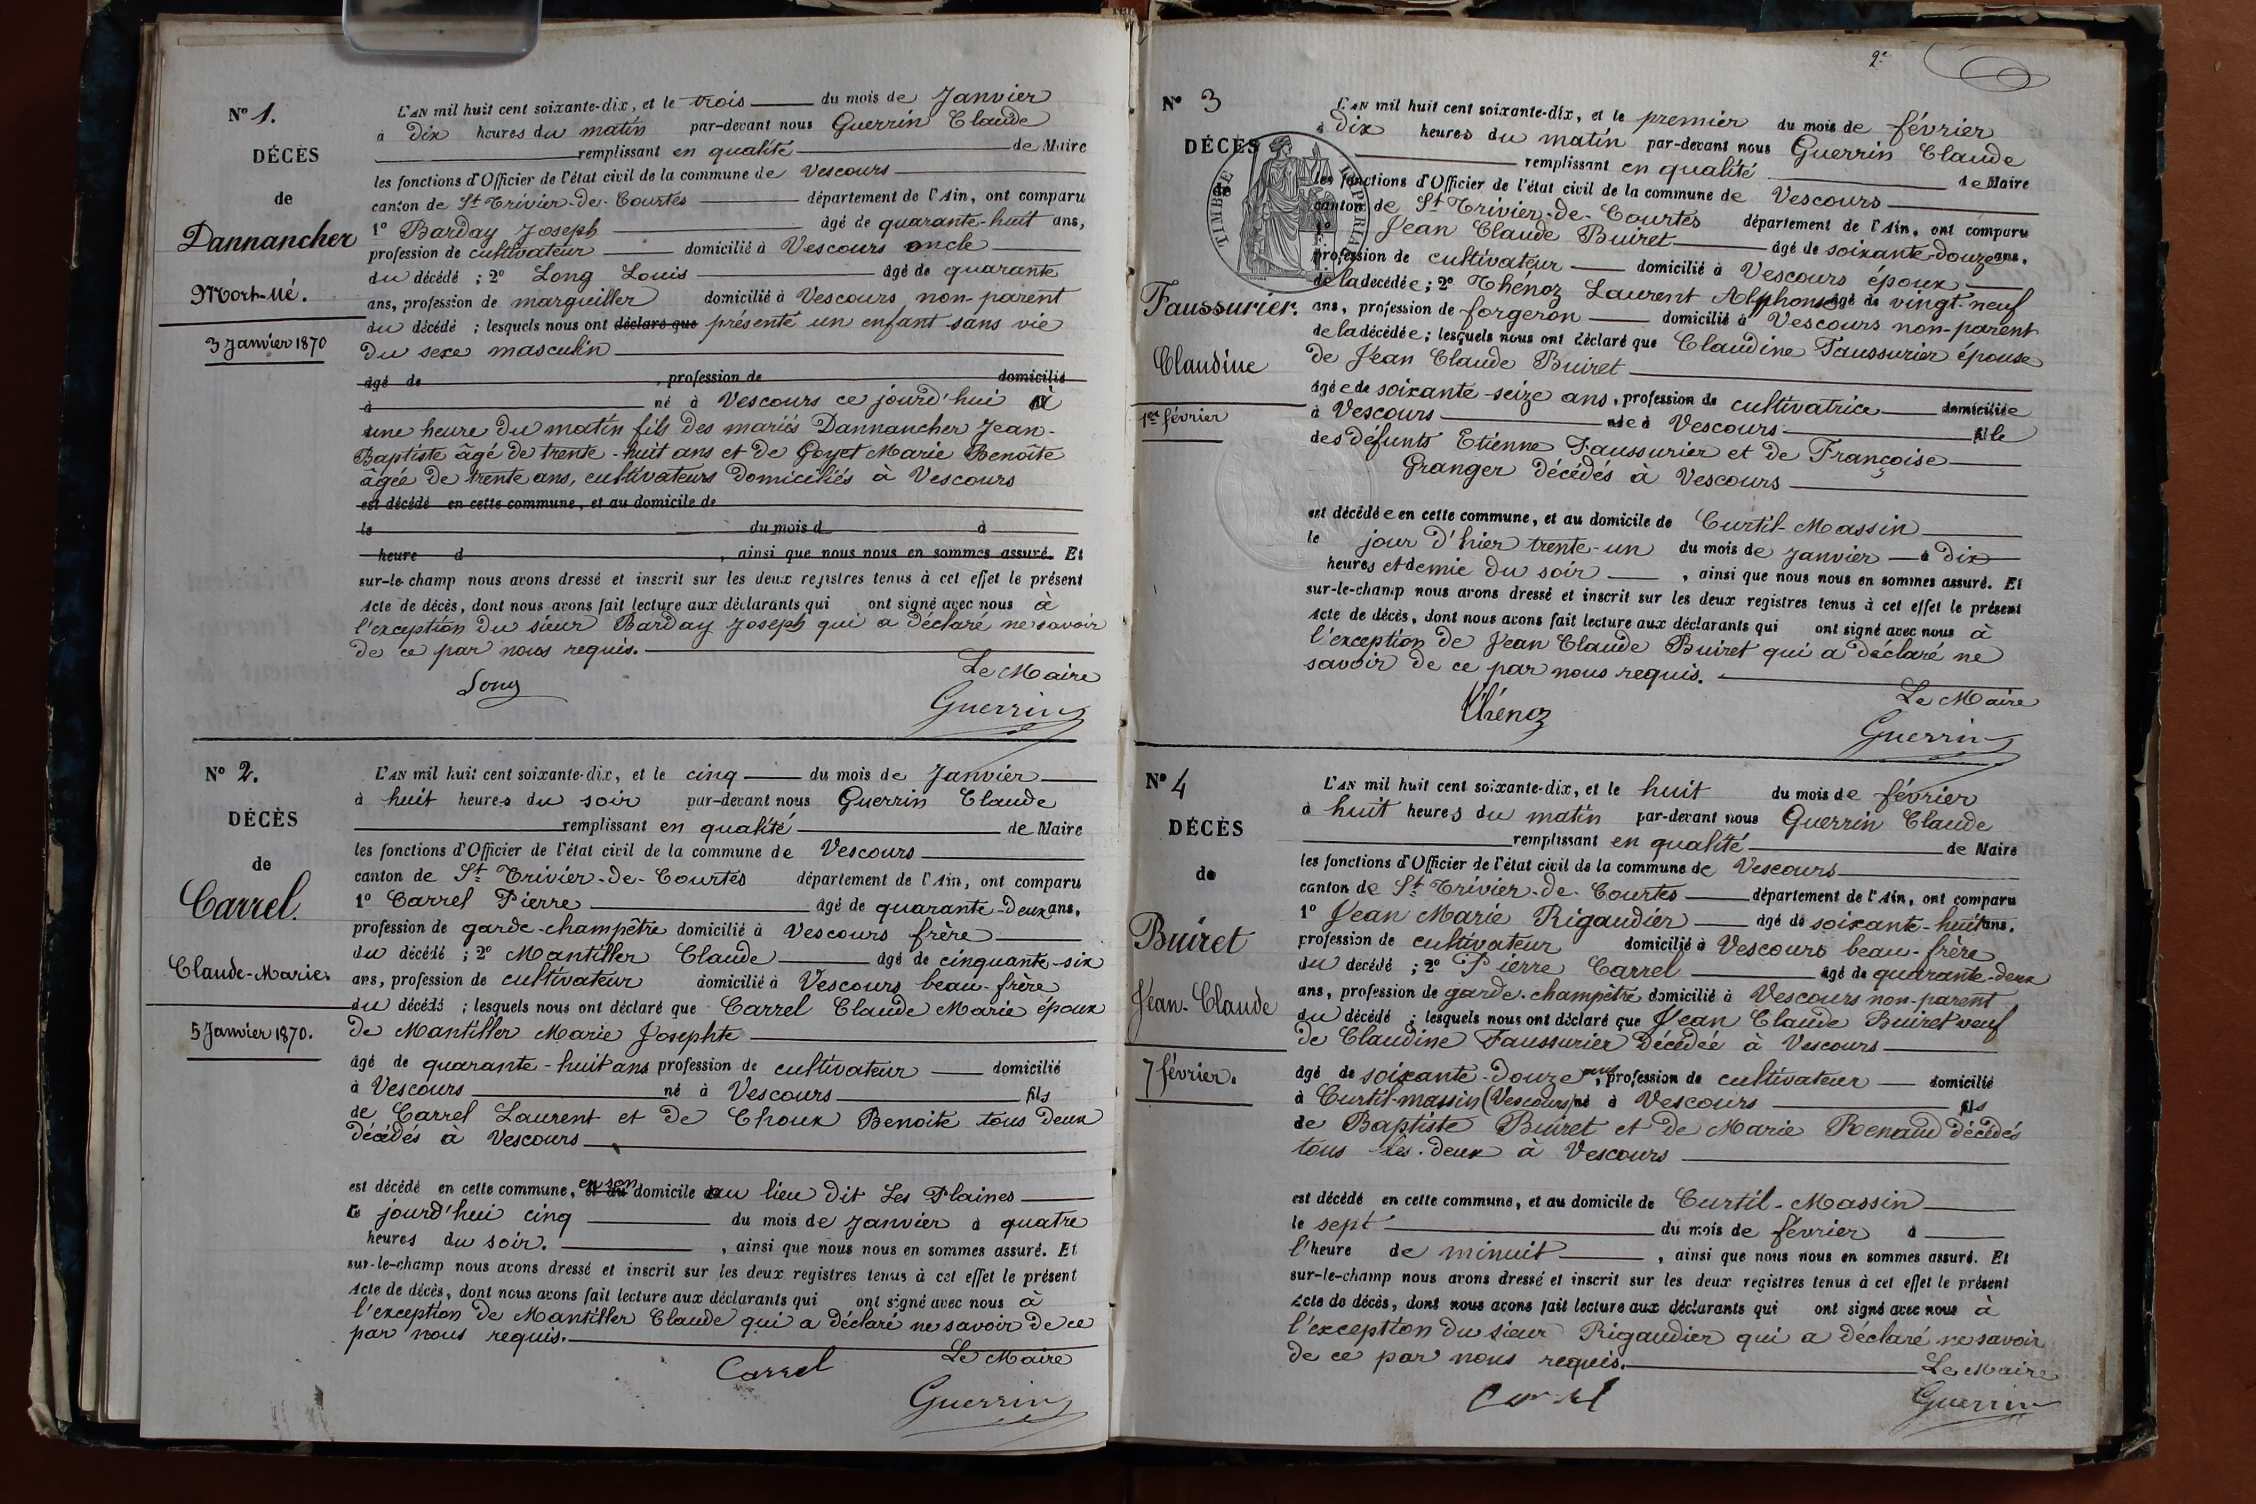 Nº 1.
DÉCÈS
de
Dannancher
Mort-Né.
3 Janvier 1870
L'AN mil huit cent soixante-dix, et le trois du mois de Janvier
à dix heures du matin par-devant nous Guerrin Claude
remplissant en qualité de Maire
les fonctions d'Officier de l'état civil de la commune de Vescours
canton de St Trivier-de-Courtes département de l'Ain, ont comparu
1º Barday Joseph âgé de quarante-huit ans,
profession de cultivateur domicilié à Vescours oncle
du décédé ; 2º Long Louis âgé de quarante
ans, profession de marguiller domicilié à Vescours non-parent
du décédé ; lesquels nous ont déclaré que présenté un enfant sans vie
du sexe masculin
âgé de , profession de domicilié
à né à Vescours ce jourd'hui à
une heure du matin fils des mariés Dannancher Jean-
Baptiste âgé de trente-huit ans et de Goyet Marie Benoîte
âgée de trente ans, cultivateurs domiciliés à Vescours
est décédé en cette commune, et au domicile de
le du mois d à
heure d , ainsi que nous nous en sommes assuré. Et
sur-le-champ nous avons dressé et inscrit sur les deux registres tenus à cet effet le présent
Acte de décès, dont nous avons fait lecture aux déclarants qui ont signé avec nous à
l'exception du sieur Barday Joseph qui a déclaré ne savoir
de ce par nous requis.
Le Maire
Long
Guerrin
Nº 2.
DÉCÈS
de
Carrel
Claude-Marie.
5 Janvier 1870.
L'AN mil huit cent soixante-dix, et le cinq du mois de Janvier
à huit heures du soir par-devant nous Guerrin Claude
remplissant en qualité de Maire
les fonctions d'Officier de l'état civil de la commune de Vescours
canton de St Trivier-de-Courtes département de l'Ain, ont comparu
1º Carrel Pierre âgé de quarante-deux ans,
profession de garde-champêtre domicilié à Vescours frère
du décédé ; 2º Mantiller Claude âgé de cinquante-six
ans, profession de cultivateur domicilié à Vescours beau-frère
du décédé ; lesquels nous ont déclaré que Carrel Claude Marie époux
de Mantiller Marie Josephte
âgé de quarante-huit ans profession de cultivateur domicilié
à Vescours né à Vescours fils
de Carrel Laurent et de Choux Benoite tous deux
décédés à Vescours
est décédé en cette commune, et au en son domicile au lieu dit Les Plaines
le jourd'hui cinq du mois de janvier à quatre
heures du soir. , ainsi que nous nous en sommes assuré. Et
sur-le-champ nous avons dressé et inscrit sur les deux registres tenus à cet effet le présent
Acte de décès, dont nous avons fait lecture aux déclarants qui ont signé avec nous à
l'exception de Mantiller Claude qui a déclaré ne savoir de ce
par nous requis.
Le Maire
Carrel
Guerrin
2e
Nº 3
DÉCÈS
de
TIMBRE IMPÉRIAL
Faussurier.
Claudine
1er février
L'AN mil huit cent soixante-dix, et le premier du mois de février
à dix heures du matin par-devant nous Guerrin Claude
remplissant en qualité de Maire
les fonctions d'Officier de l'état civil de la commune de Vescours
canton de St Trivier-de-Courtes département de l'Ain, ont comparu
1º Jean Claude Buiret âgé de soixante-douze ans,
profession de cultivateur domicilié à Vescours époux
de la decédée ; 2º Thénoz Laurent Alphonse âgé de vingt-neuf
ans, profession de forgeron domicilié à Vescours non-parent
de la décédée ; lesquels nous ont déclaré que Claudine Faussurier épouse
de Jean Claude Buiret
âgée de soixante-seize ans, profession de cultivatrice domiciliée
à Vescours née à Vescours fille
des défunts Etienne Faussurier et de Françoise
Granger décédés à Vescours
est décédée en cette commune, et au domicile de Curtil-Massin
le jour d'hier trente-un du mois de janvier à dix
heures et demie du soir , ainsi que nous nous en sommes assuré. Et
sur-le-champ nous avons dressé et inscrit sur les deux registres tenus à cet effet le présent
Acte de décès, dont nous avons fait lecture aux déclarants qui ont signé avec nous à
l'exception de Jean Claude Buiret qui a déclaré ne
savoir de ce par nous requis.
Le Maire
Thénoz
Guerrin
Nº 4
DÉCÈS
de
Buiret
Jean-Claude
7 février.
L'AN mil huit cent soixante-dix, et le huit du mois de février
à huit heures du matin par-devant nous Guerrin Claude
remplissant en qualité de Maire
les fonctions d'Officier de l'état civil de la commune de Vescours
canton de St Trivier-de-Courtes département de l'Ain, ont comparu
1º Jean Marie Rigaudier âgé de soixante-huit ans,
profession de cultivateur domicilié à Vescours beau-frère
du décédé ; 2º Pierre Carrel âgé de quarante-deux
ans, profession de garde-champêtre domicilié à Vescours non-parent
du décédé ; lesquels nous ont déclaré que Jean Claude Buiret veuf
de Claudine Faussurier Décédée à Vescours
âgé de soixante-douze ans, profession de cultivateur domicilié
à Curtil-massin (Vescours) né à Vescours fils
de Baptiste Buiret et de Marie Renaud décédés
tous les deux à Vescours
est décédé en cette commune, et au domicile de Curtil-Massin
le sept du mois de février à
l'heure de minuit , ainsi que nous nous en sommes assuré. Et
sur-le-champ nous avons dressé et inscrit sur les deux registres tenus à cet effet le présent
Acte de décès, dont nous avons fait lecture aux déclarants qui ont signé avec nous à
l'exception du sieur Rigaudier qui a déclaré ne savoir
de ce par nous requis.
Le Maire
Carrel
Guerrin